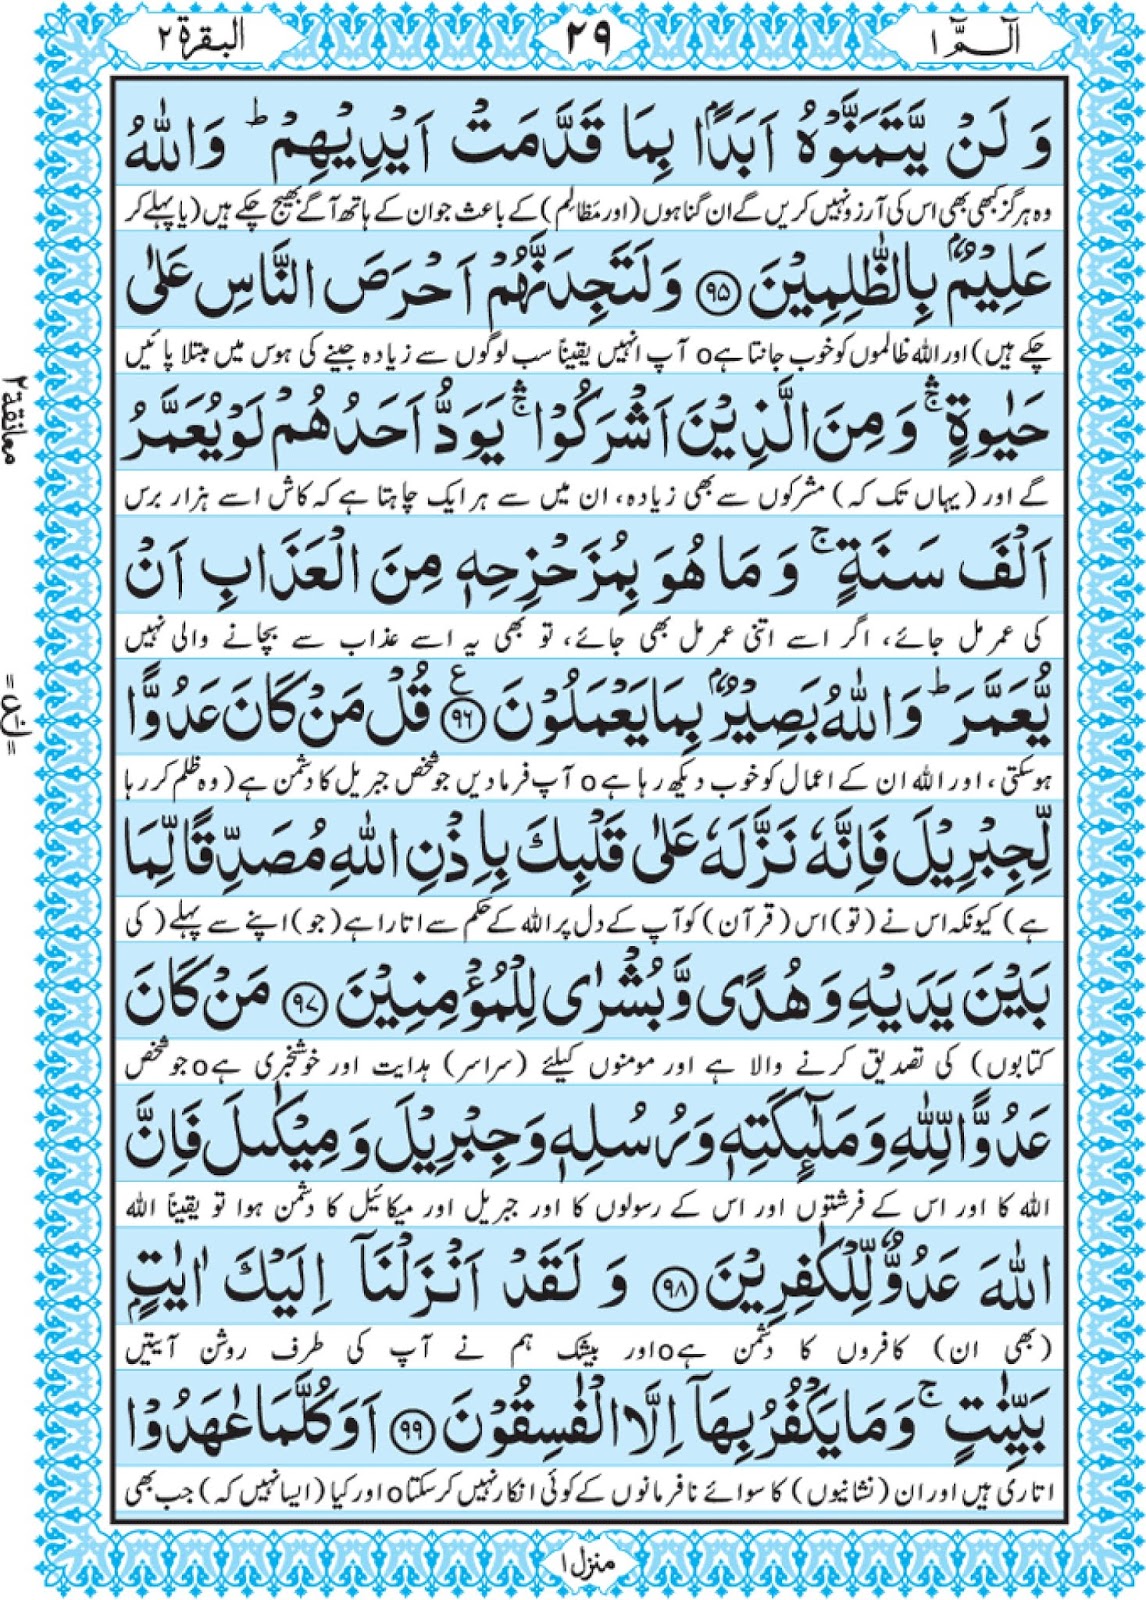 الٓـمّٓ ١ ٢٩ البقرة ٢
وَ لَنْ يَّتَمَنَّوْهُ اَبَدًۢا بِمَا قَدَّمَتْ اَيْدِيْهِمْ ؕ وَاللّٰهُ
وہ ہرگز کبھی بھی اس کی آرزو نہیں کریں گے ان گناہوں (اور مَظالِم) کے باعث جو ان کے ہاتھ آگے بھیج چکے ہیں (یا پہلے کر
عَلِيْمٌۢ بِالظّٰلِمِيْنَ ﴿۹۵﴾ وَلَتَجِدَنَّهُمْ اَحْرَصَ النَّاسِ عَلٰى
چکے ہیں) اور اللہ ظالموں کو خوب جانتا ہےo آپ انہیں یقیناً سب لوگوں سے زیادہ جینے کی ہوس میں مبتلا پائیں
حَيٰوةٍ ۛۚ وَ مِنَ الَّذِيْنَ اَشْرَكُوْا ۛۚ يَوَدُّ اَحَدُهُمْ لَوْ يُعَمَّرُ
معانقة ٢
گے اور (یہاں تک کہ) مشرکوں سے بھی زیادہ، ان میں سے ہر ایک چاہتا ہے کہ کاش اسے ہزار برس
اَلْفَ سَنَةٍ ۚ وَ مَا هُوَ بِمُزَحْزِحِهٖ مِنَ الْعَذَابِ اَنْ
کی عمر مل جائے، اگر اسے اتنی عمر مل بھی جائے، تو بھی یہ اسے عذاب سے بچانے والی نہیں
يُّعَمَّرَ ؕ وَاللّٰهُ بَصِيْرٌۢ بِمَا يَعْمَلُوْنَ ﴿۹۶﴾ ع قُلْ مَنْ كَانَ عَدُوًّا
ہوسکتی، اور اللہ ان کے اعمال کو خوب دیکھ رہا ہےo آپ فرما دیں جو شخص جبریل کا دشمن ہے (وہ ظلم کر رہا
لِّجِبْرِيْلَ فَاِنَّهٗ نَزَّلَهٗ عَلٰى قَلْبِكَ بِاِذْنِ اللّٰهِ مُصَدِّقًا لِّمَا
ہے) کیونکہ اس نے (تو) اس (قرآن) کو آپ کے دل پر اللہ کے حکم سے اتارا ہے (جو) اپنے سے پہلے (کی
بَيْنَ يَدَيْهِ وَ هُدًى وَّ بُشْرٰى لِلْمُؤْمِنِيْنَ ﴿۹۷﴾ مَنْ كَانَ
کتابوں) کی تصدیق کرنے والا ہے اور مومنوں کیلئے (سراسر) ہدایت اور خوشخبری ہےo جو شخص
عَدُوًّا لِّلّٰهِ وَ مَلٰٓئِكَتِهٖ وَ رُسُلِهٖ وَ جِبْرِيْلَ وَ مِيْكٰىلَ فَاِنَّ
اللہ کا اور اس کے فرشتوں اور اس کے رسولوں کا اور جبریل اور میکائیل کا دشمن ہوا تو یقیناً اللہ
اللّٰهَ عَدُوٌّ لِّلْكٰفِرِيْنَ ﴿۹۸﴾ وَ لَقَدْ اَنْزَلْنَاۤ اِلَيْكَ اٰيٰتٍۭ
(بھی ان) کافروں کا دشمن ہےo اور بیشک ہم نے آپ کی طرف روشن آیتیں
بَيِّنٰتٍ ۚ وَ مَا يَكْفُرُ بِهَاۤ اِلَّا الْفٰسِقُوْنَ ﴿۹۹﴾ اَوَ كُلَّمَا عٰهَدُوْا
اتاری ہیں اور ان (نشانیوں) کا سوائے نافرمانوں کے کوئی انکار نہیں کر سکتاo اور کیا (ایسا نہیں کہ) جب بھی
منزل ١